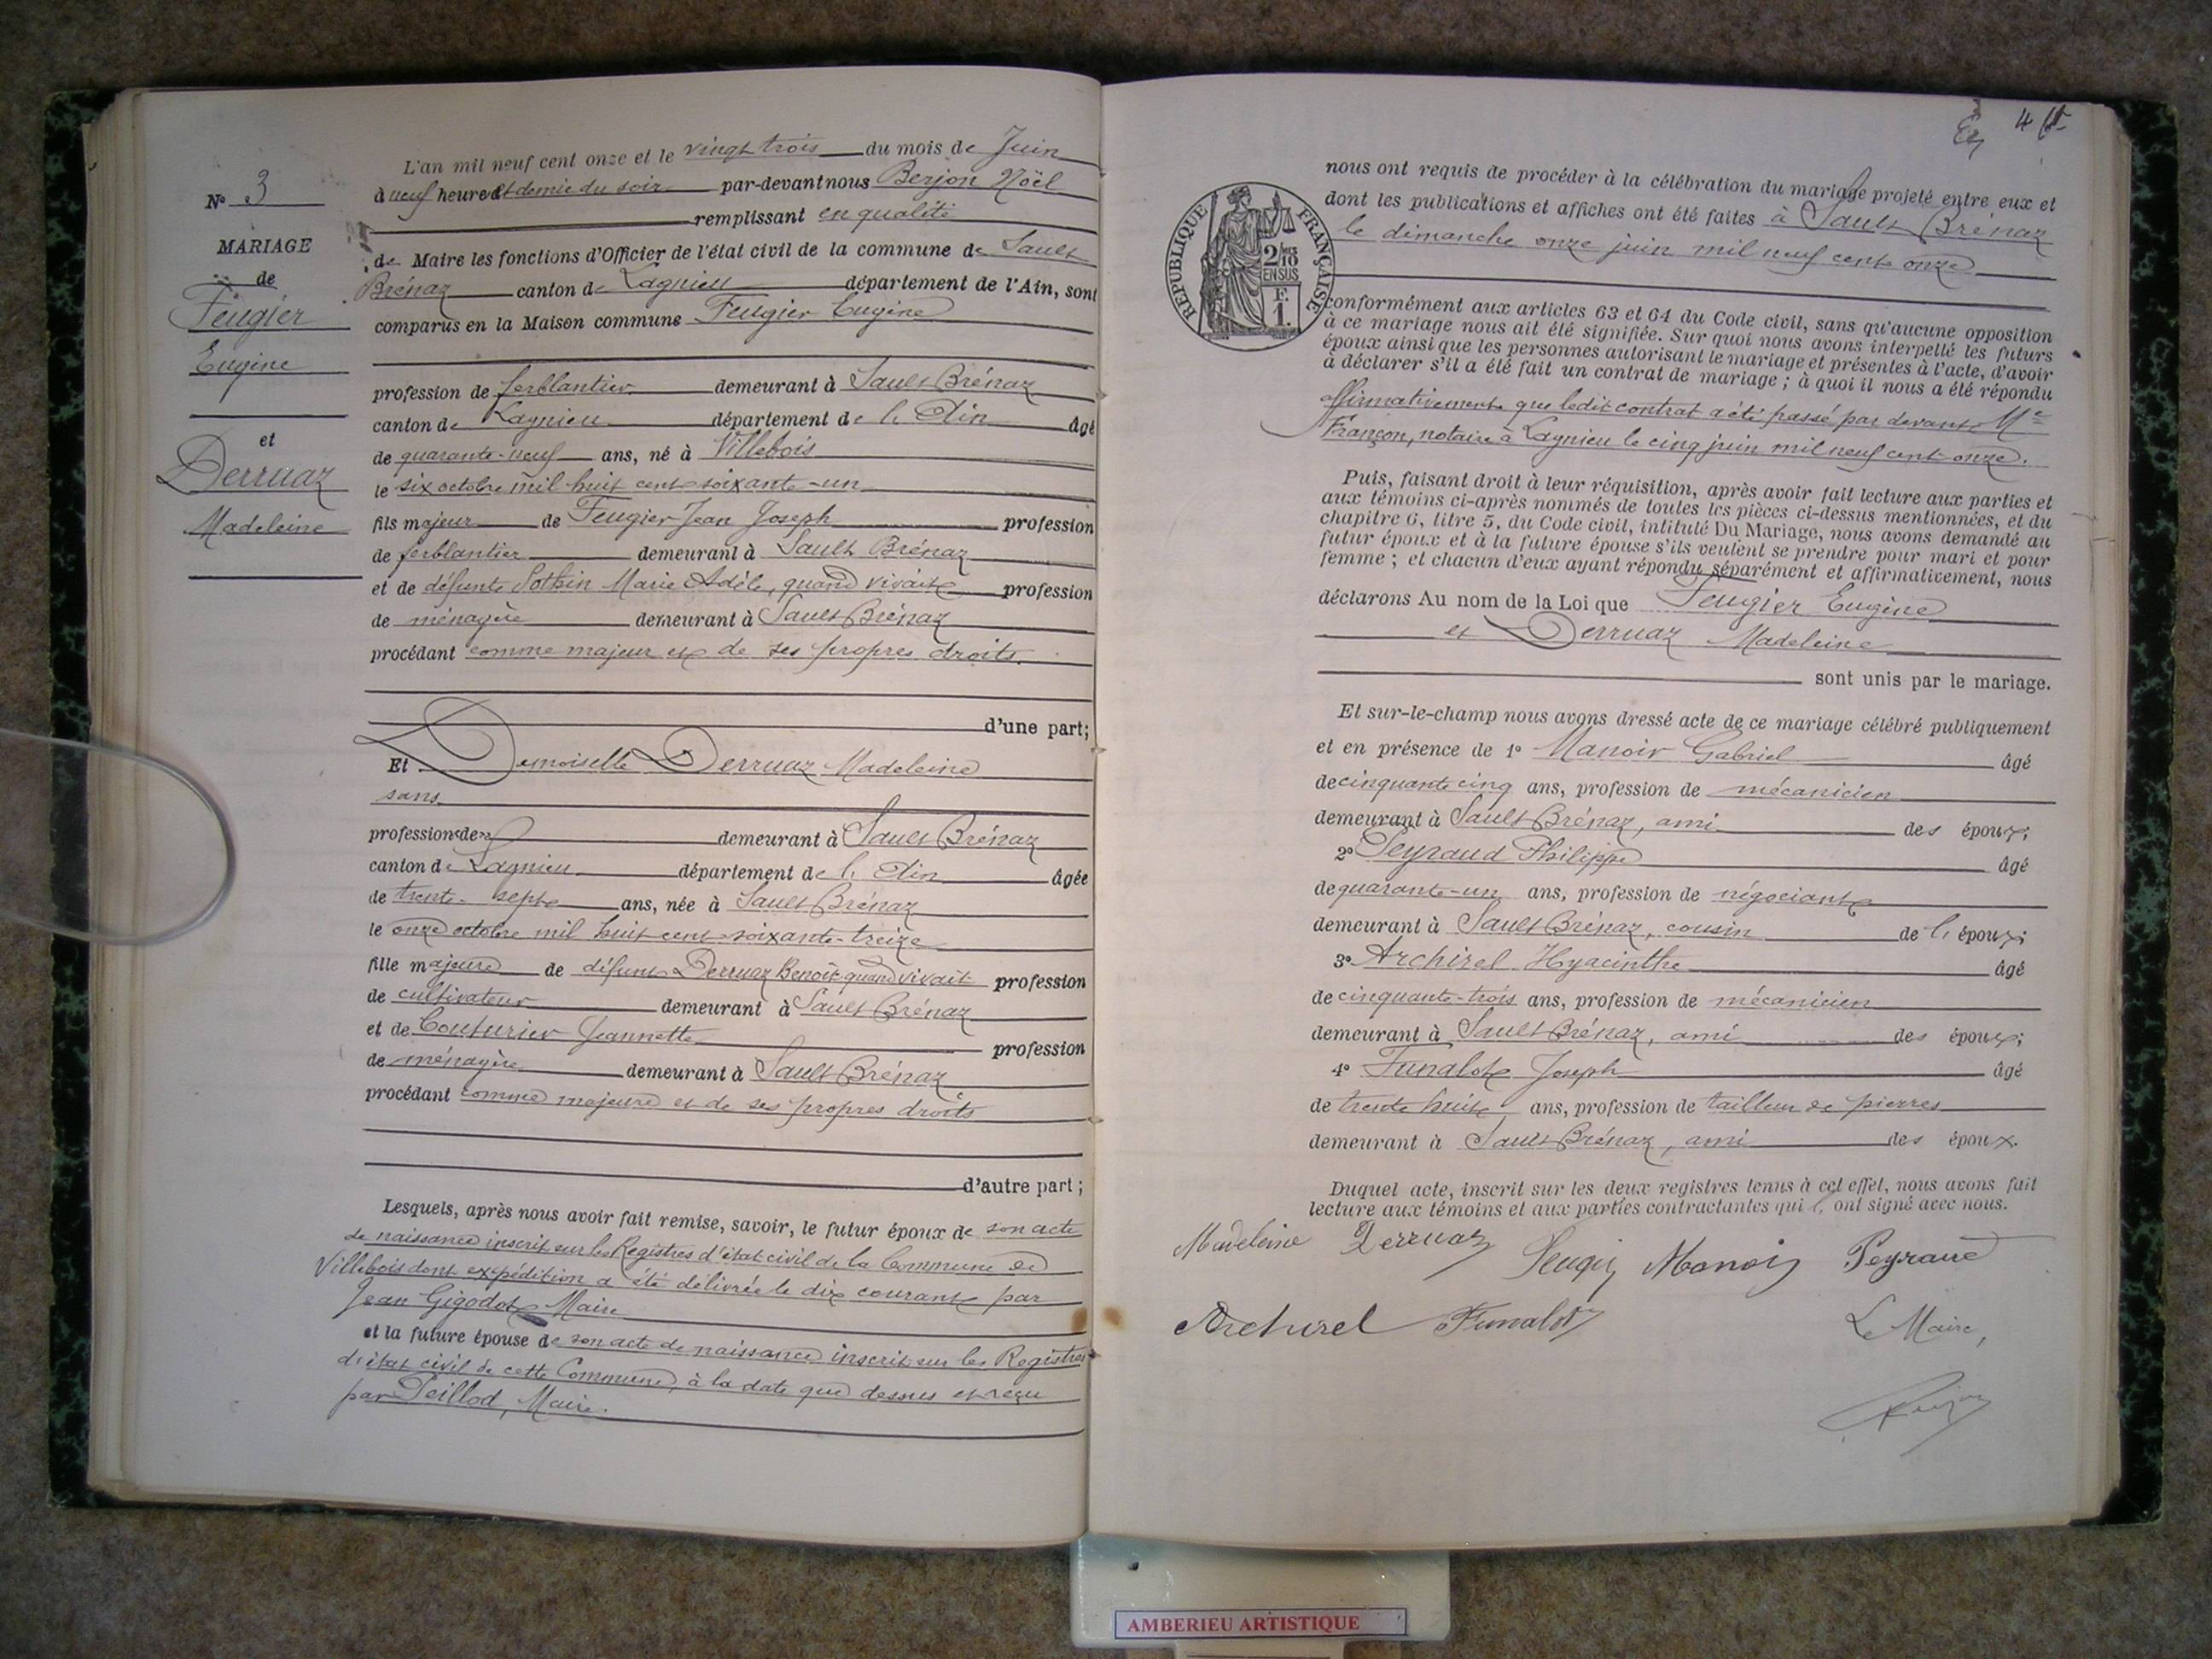 N° 3
MARIAGE
de
Feugier
Eugène
et
Derruaz
Madeleine
L'an mil neuf cent onze et le vingt trois du mois de Juin
à neuf heures et demie du soir par-devant nous Berjon Noël
remplissant en qualité
de Maire les fonctions d'Officier de l'état civil de la commune de Sault
Brénaz canton de Lagnieu département de l'Ain, sont
comparus en la Maison commune Feugier Eugène
profession de ferblantier demeurant à Sault Brénaz
canton de Lagnieu département de l'Ain âgé
de quarante-neuf ans, né à Villebois
le six octobre mil huit cent soixante-un
fils majeur de Feugier Jean Joseph profession
de ferblantier demeurant à Sault Brénaz
et de défunte Pothin Marie Adèle, quand vivait profession
de ménagère demeurant à Sault Brénaz
procédant comme majeur et de ses propres droits.
d'une part;
Et Demoiselle Derruaz Madeleine
sans
profession de demeurant à Sault Brénaz
canton de Lagnieu département de l'Ain âgée
de trente-sept ans, née à Sault Brénaz
le onze octobre mil huit cent soixante-treize
fille majeure de défunt Derruaz Benoît quand vivait profession
de cultivateur demeurant à Sault Brénaz
et de Couturier Jeannette profession
de ménagère demeurant à Sault Brénaz
procédant comme majeure et de ses propres droits
d'autre part;
Lesquels, après nous avoir fait remise, savoir, le futur époux de son acte
de naissance inscrit sur les Registres d'état civil de la Commune de
Villebois dont expédition a été délivrée le dix courant par
Jean Gigodot Maire
et la future épouse de son acte de naissance inscrit sur les Registres
d'état civil de cette Commune, à la date que dessus et reçu
par Peillod, Maire.
4
RÉPUBLIQUE FRANÇAISE
2/10
EN SUS
F.
1.
nous ont requis de procéder à la célébration du mariage projeté entre eux et
dont les publications et affiches ont été faites à Sault Brénaz
le dimanche onze juin mil neuf cent onze
conformément aux articles 63 et 64 du Code civil, sans qu'aucune opposition
à ce mariage nous ait été signifiée. Sur quoi nous avons interpellé les futurs
époux ainsi que les personnes autorisant le mariage et présentes à l'acte, d'avoir
à déclarer s'il a été fait un contrat de mariage; à quoi il nous a été répondu
affirmativement que ledit contrat a été passé par devant Me
Françon, notaire à Lagnieu le cinq juin mil neuf cent onze.
Puis, faisant droit à leur réquisition, après avoir fait lecture aux parties et
aux témoins ci-après nommés de toutes les pièces ci-dessus mentionnées, et du
chapitre 6, titre 5, du Code civil, intitulé Du Mariage, nous avons demandé au
futur époux et à la future épouse s'ils veulent se prendre pour mari et pour
femme; et chacun d'eux ayant répondu séparément et affirmativement, nous
déclarons Au nom de la Loi que Feugier Eugène
et Derruaz Madeleine
sont unis par le mariage.
Et sur-le-champ nous avons dressé acte de ce mariage célébré publiquement
et en présence de 1° Manoir Gabriel âgé
de cinquante cinq ans, profession de mécanicien
demeurant à Sault Brénaz, ami des époux;
2° Peyraud Philippe âgé
de quarante-un ans, profession de négociant
demeurant à Sault Brénaz, cousin de l'époux;
3° Archirel Hyacinthe âgé
de cinquante-trois ans, profession de mécanicien
demeurant à Sault Brénaz, ami des époux;
4° Funalot Joseph âgé
de trente huit ans, profession de tailleur de pierres
demeurant à Sault Brénaz, ami des époux.
Duquel acte, inscrit sur les deux registres tenus à cet effet, nous avons fait
lecture aux témoins et aux parties contractantes qui l'ont signé avec nous.
Madeleine Derruaz Feugier Manoir Peyraud
Archirel Funalot Le Maire,
AMBERIEU ARTISTIQUE